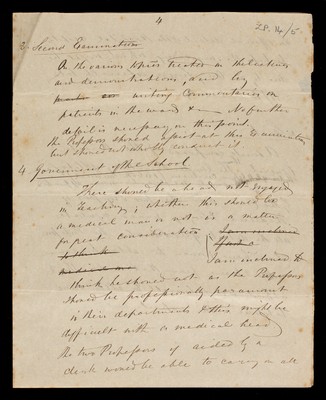 4
28. 14/5
3 Second Examination
On the various topics treated in the lectures
and demonstrations, and by
writing Commentaries on
patients in the ward &c — No further
detail is necessary on this point
the Professors should assist at this Examination
but should not wholly conduct it
4 Government of the School
There should be a head not engaged
in teaching; whether this should be
a medical man or not is a matter
for great consideration. I am inclined
to think
medical man
I am inclined to
think he should not as the Professors
should be professionally paramount
in their departments & this might be
difficult with a medical head
The two Professors if aided by a
clerk would be able to carry on all